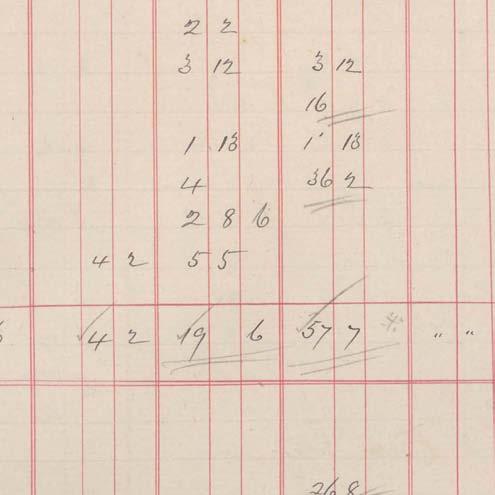 2 2
3 12 3 12
16
1 13 1 13
4 36 2
2 8 6
4 2 5 5
4 2 19 6 57 7 " "